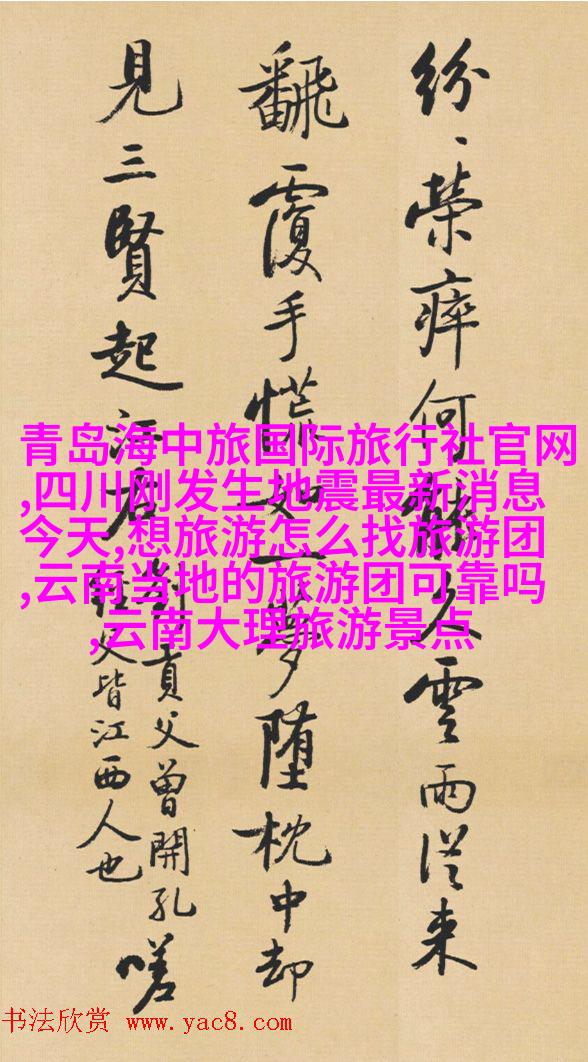 紛、榮瘁何能久雲雨從来
飜覆手慌如一夢堕枕中却
見三賢起江右
劉貢父曾開孔
經父皆江西人也
嗟
青岛海中旅国际旅行社官网
,四川刚发生地震最新消息
今天,想旅游怎么找旅游团
,云南当地的旅游团可靠吗
,云南大理旅游景点
书法欣赏 www.yac8.com